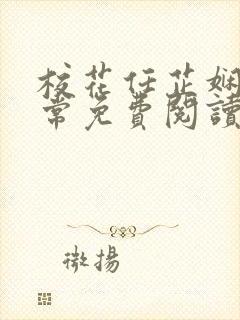 校花任芷娴
常免費閱讀
微揚